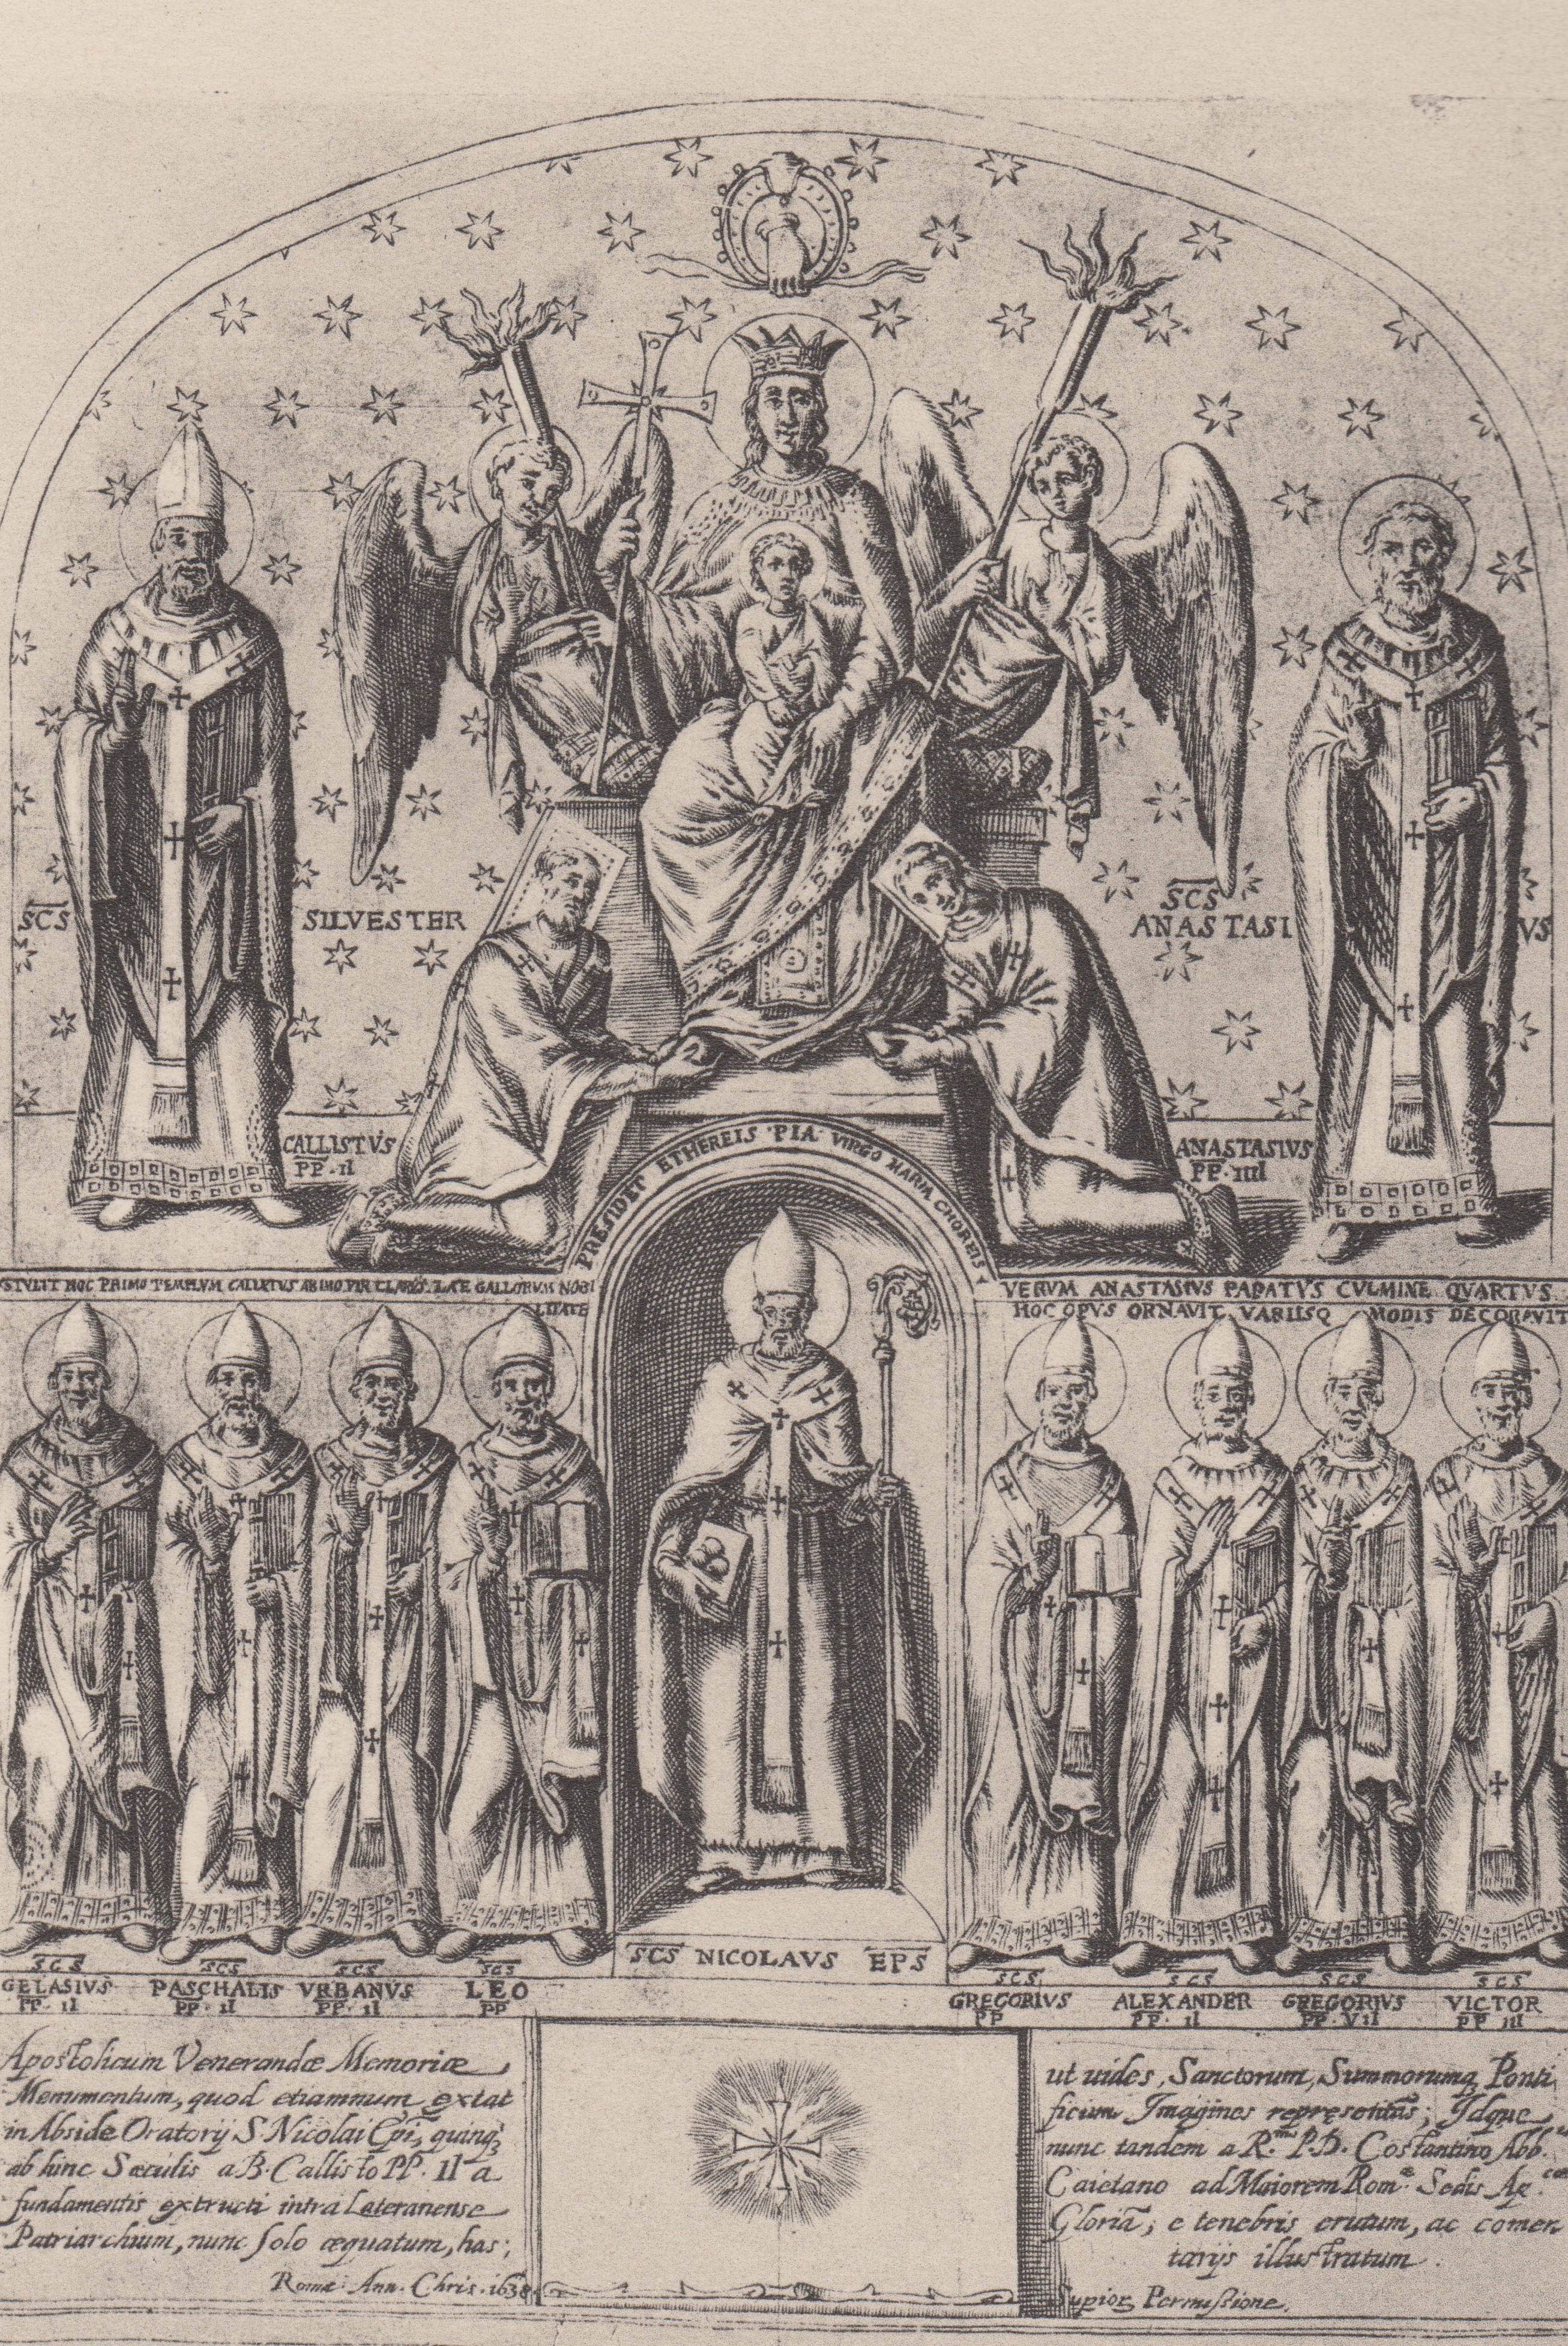 SCS SILVESTER
SCS
ANASTASI VS
CALLISTVS
PP·II
ANASTASIVS
PP·IIII
PRESIDET ETHEREIS PIA VIRGO MARIA CHOREIS
STVLIT HOC PRIMO TEMPLVM CALLISTVS AB IMO VIR CLARVS LATE GALLORVM NOBI
LITATE
VERVM ANASTASIVS PAPATVS CVLMINE QVARTVS
HOC OPVS ORNAVIT VARIISQ MODIS DECORAVIT
SCS
GELASIVS
PP·II
SCS
PASCHALIS
PP·II
SCS
VRBANVS
PP·II
SCS
LEO
PP
SCS NICOLAVS EPS
SCS
GREGORIVS
PP
SCS
ALEXANDER
PP·II
SCS
GREGORIVS
PP·VII
SCS
VICTOR
PP III
Apostolicum Venerandæ Memoriæ
Menumentum, quod etiamnum extat
in Abside Oratorÿ S Nicolai Epi, quinq3
ab hinc Sæculis a B. Callisto PP. II a
fundamentis extructi intra Lateranense
Patriarchium, nunc solo æquatum, has;
Romæ Ann. Chris. 1638
ut uides, Sanctorum, Summorumq Ponti
ficum Imagines repręsentās; Idque
nunc tandem a R.mo P.D. Costantino Abb.
Caietano ad Maiorem Rom.æ Sedis Ap.cæ
Gloriā; e tenebris erutum, ac comen
tarÿs illustratum.
Superior Permissione.